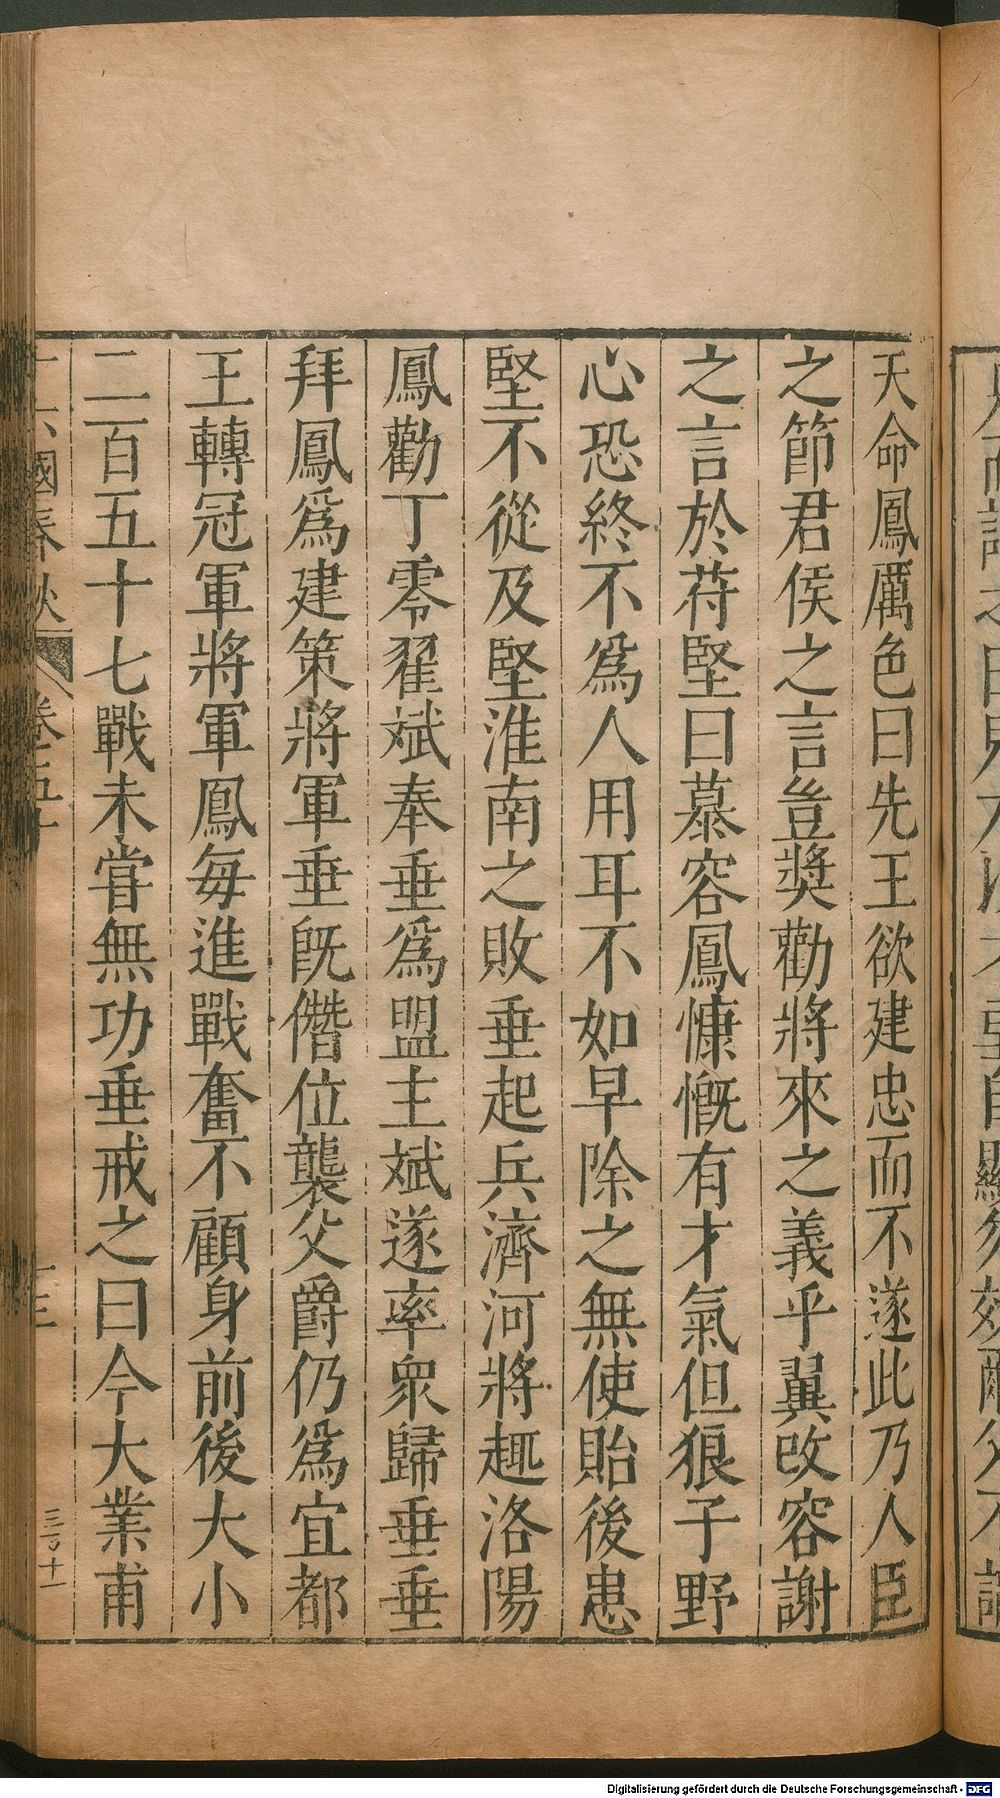 天命鳳厲色曰先王欲建忠而不遂此乃人臣
之節君侯之言豈獎勸將來之義乎翼改容謝
之言於苻堅曰慕容鳳慷慨有才氣但狼子野
心恐終不爲人用耳不如早除之無使貽後患
堅不從及堅淮南之敗垂起兵濟河將趣洛陽
鳳勸丁零翟斌奉垂爲盟主斌遂率衆歸垂垂
拜鳳爲建策將軍垂旣僭位襲父爵仍爲宜都
王轉冠軍將軍鳳每進戰奮不顧身前後大小
二百五十七戰未嘗無功垂戒之曰今大業甫
國春秋
卷五十
Digitalisierung gefördert durch die Deutsche Forschungsgemeinschaft - DFG